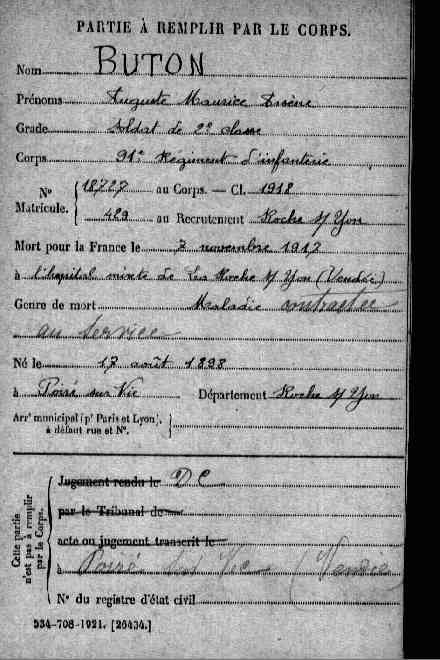 PARTIE À REMPLIR PAR LE CORPS.
Nom BUTON
Prénoms Auguste Maurice Arsène
Grade Soldat de 2e classe
Corps 91e Régiment d'infanterie
N° Matricule. 18727 au Corps. — Cl. 1918
489 au Recrutement Roche s/ Yon
Mort pour la France le 7 novembre 1917
à l'hopital mixte de La Roche s/ Yon (Vendée)
Genre de mort Maladie contractée
au service
Né le 17 août 1898
à Poiré sur Vie Département Roche s/ Yon
Arrt municipal (pr Paris et Lyon),
à défaut rue et N°.
Cette partie n'est pas à remplir par le Corps.
Jugement rendu le D C
par le Tribunal de
acte ou jugement transcrit le
à Poiré sur Vie (Vendée)
N° du registre d'état civil
534-708-1921. [26434.]